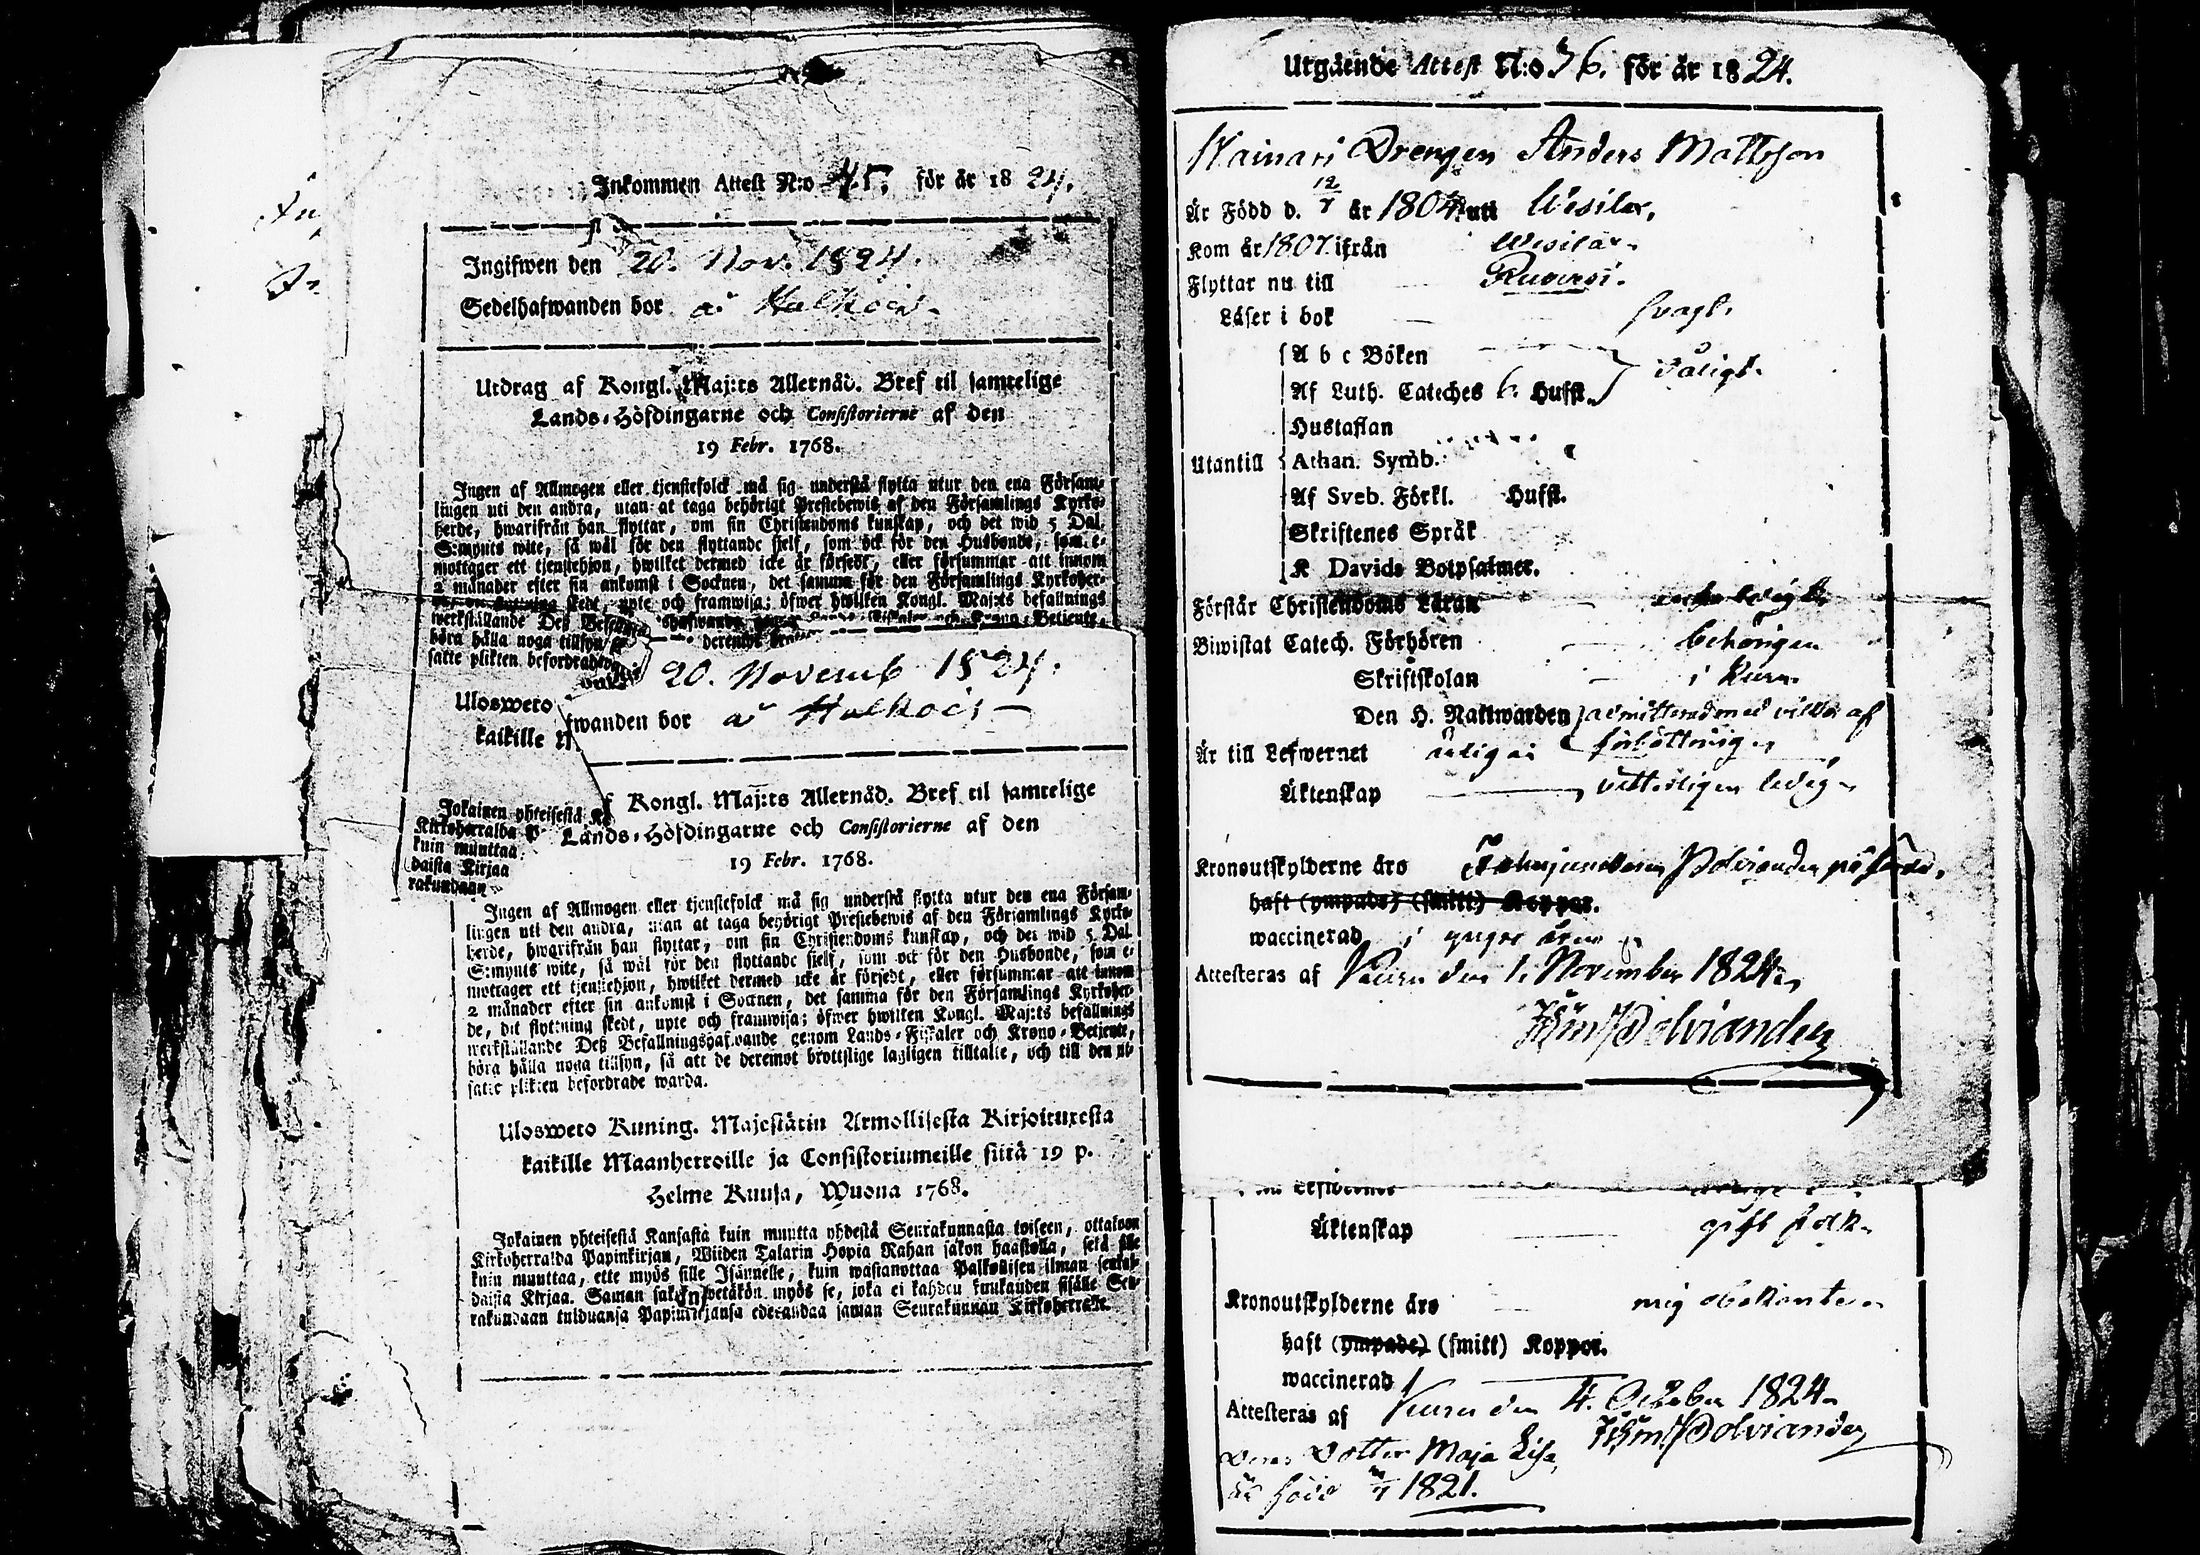 Inkommen Attest N:o 45. för år 1824.
Ingifwen den 20. Nov. 1824.
Sedelhafwanden bor å Halkois
Utdrag af Kongl. Maj:ts Allernåd. Bref til samtelige
Lands-Höfdingarne och Consistorierne af den
19 Febr. 1768.
Ingen af Allmogen eller tjenstefolck må sig understå flytta utur den ena Försam-
lingen uti den andra, utan at taga behörigt Prestebewis af den Församlings Kyrko-
herde, hwarifrån han flyttar, om sin Christendoms kunskap, och det wid 5 Dal.
S:mynts wite, så wäl för den flyttande sjelf, som ock för den Husbonde, som e-
mottager ett tjenstehjon, hwilket dermed icke är försedt, eller försummar att innom
2 månader efter sin ankomst i Socknen, det samma för den Församlings Kyrkoher-
skedt, upte och framwisa; öfwer hwilken Kongl. Maj:ts befallnings
werkställande Deß
böra hålla noga tillsyn
satte plikten befordrade
20. Novemb 1824.
Ulosweto
wanden bor å Halkois
kaikille
Kongl. Maj:ts Allernåd. Bref til samtelige
Jokainen yhteisestä
Kirkoherralda
Lands-Höfdingarne och Consistorierne af den
kuin muuttaa
19 Febr. 1768.
daista Kirjaa
rakundaan
Ingen af Allmogen eller tjenstefolck må sig understå flytta utur den ena Försam-
lingen uti den andra, utan at taga behörigt Prestebewis af den Församlings Kyrko-
herde, hwarifrån han flyttar, om sin Christendoms kunskap, och det wid 5 Dal.
S:mynts wite, så wäl för den flyttande sjelf, som ock för den Husbonde, som e-
mottager ett tjenstehjon, hwilket dermed icke är försedt, eller försummar att innom
2 månader efter sin ankomst i Socknen, det samma för den Församlings Kyrkoher-
de, dit flyttning skedt, upte och framwisa; öfwer hwilken Kongl. Maj:ts befallnings
werkställande Deß Befallningshafwande genom Lands-Fiskaler och Krono-Betjente,
böra hålla noga tillsyn, så att de deremot brottslige lagligen tilltalte, och till den ut-
satte plikten befordrade warda.
Ulosweto Kuning. Majestätin Armollisesta Kirjoituxesta
kaikille Maanherroille ja Consistoriumeille siitä 19 p.
Helme Kuusa, Wuona 1768.
Jokainen yhteisestä Kansasta kuin muutta yhdestä Seurakunnasta toiseen, ottakoon
Kirkoherralda Papinkirjan, Wiiden Talarin Hopia Rahan sakon haastolla, sekä sille
kuin muuttaa, ette myös sille Isännelle, kuin wastanottaa Palkollisen ilman senkal-
daista Kirjaa. Saman sakon wetäkön myös se, joka ei kahden kuukauden sisälle Seu-
rakundaan tulduansa Papinkirjansa edesandaa saman Seurakunnan Kirkoherralle.
Utgående Attest N:o 36. för år 1824.
Wainari Drengen Anders Mattsson
Är Född d. 12/7 år 1804 uti Wesilax,
Kom år 1807. ifrån Wesilax
Flyttar nu till Ruovesi.
Läser i bok svagt.
A b c Boken
Af Luth. Cateches 6. Hufst. dåligt.
Hustaflan
Utantill Athan. Symb.
Af Sveb. Förkl. Hufst.
Skriftenes Språk
K Davids Botpsalmer.
Förstår Christendoms Läran
Biwistat Catech. Förhören behörigen
Skriftskolan i Kuru
Den H. Nattwarden admitterad med vilkor af
Är till Lefwernet ärlig förbättring
Äktenskap vetterligen ledig
Kronoutskylderne äro
haft (ympade) (smitt) Koppor.
waccinerad i yngre åren
Attesteras af Kuru den 1. November 1824.
Polviander
Äktenskap gift folk
Kronoutskylderne äro mig obekante
haft (ympade) (smitt) Koppor.
waccinerad
Attesteras af Kuru den 4. October 1824
Polviander
Deras Dotter Maja Lisa,
är född 1821.